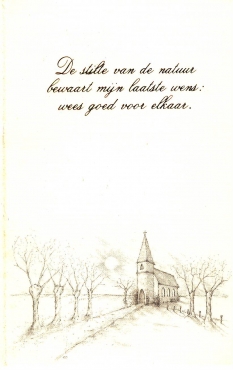 De stilte van de natuur
bewaart mijn laatste wens:
wees goed voor elkaar.